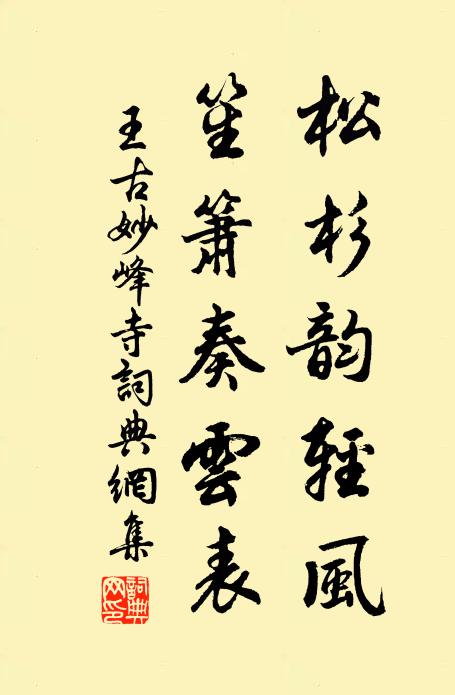 松杉韵輕風
笙簫奏雲表
王古妙峰寺詞典網集
詞典網印